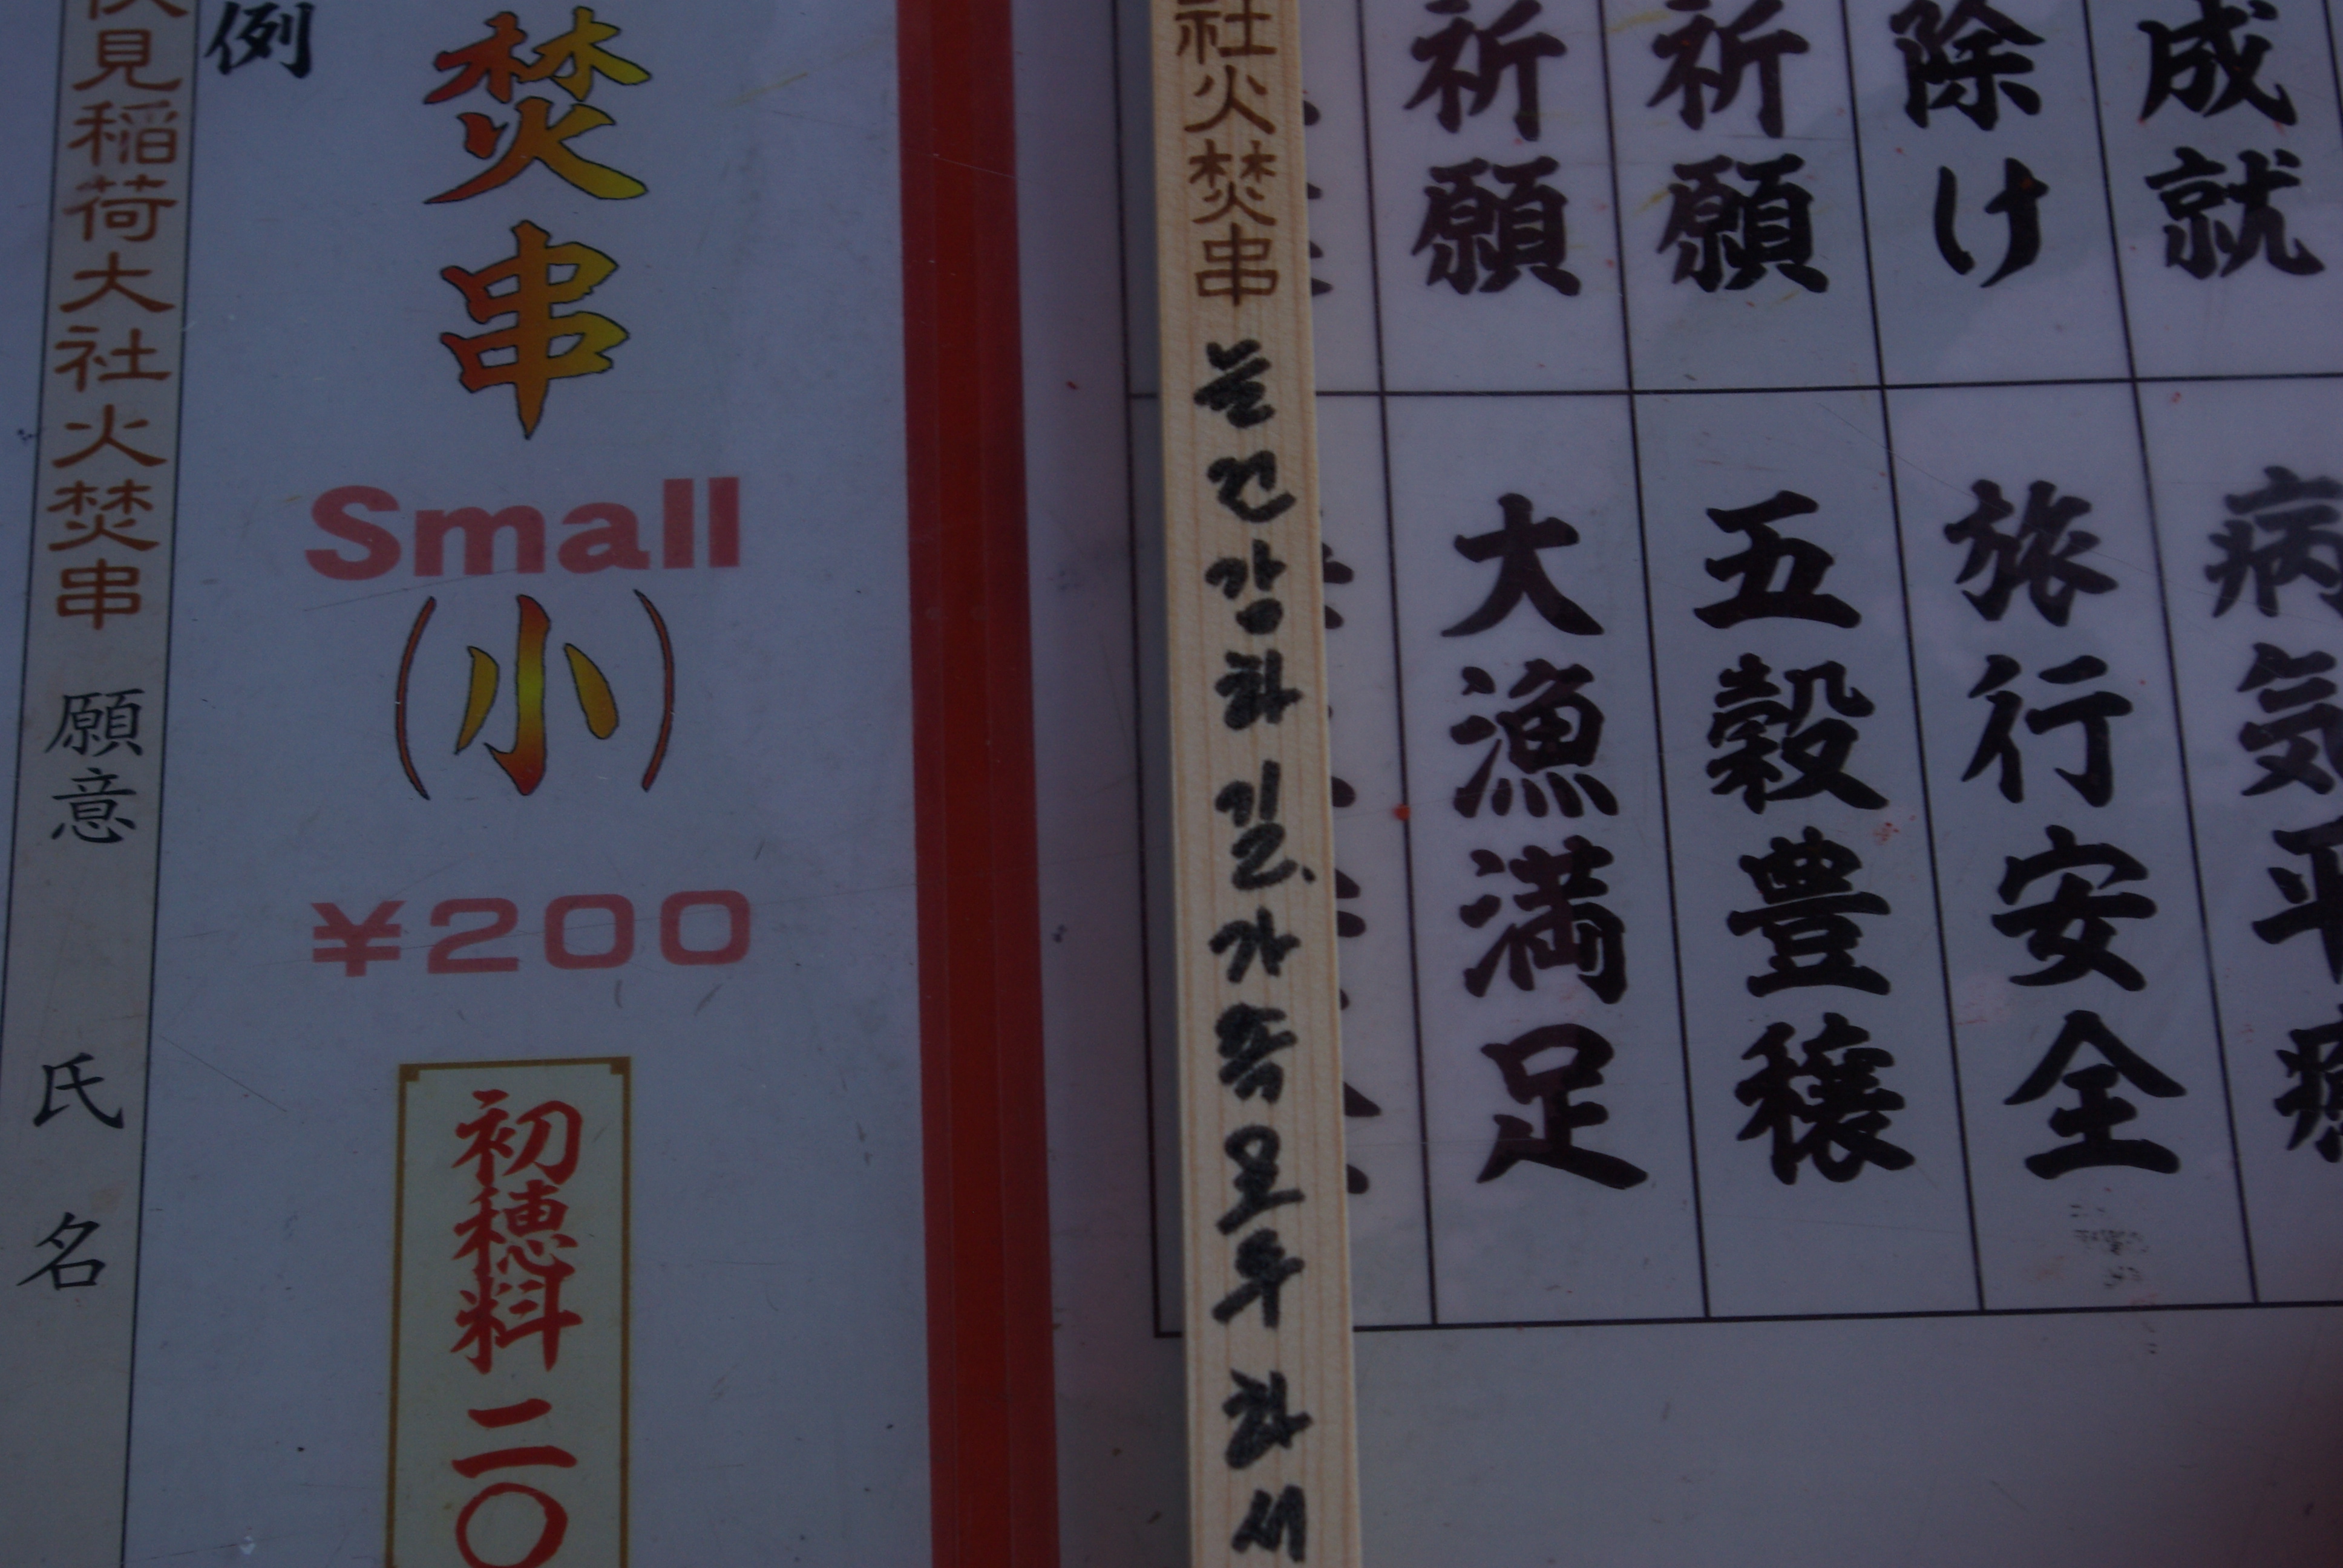 伏見稲荷大社火焚串 願意 氏名
例
焚串
Small
(小)
¥200
初穂料 二〇
社火焚串 늘 건강하길. 가족 모두 하
祈願
祈願
除け
成就
大漁満足
五穀豊穣
旅行安全
病気平癒